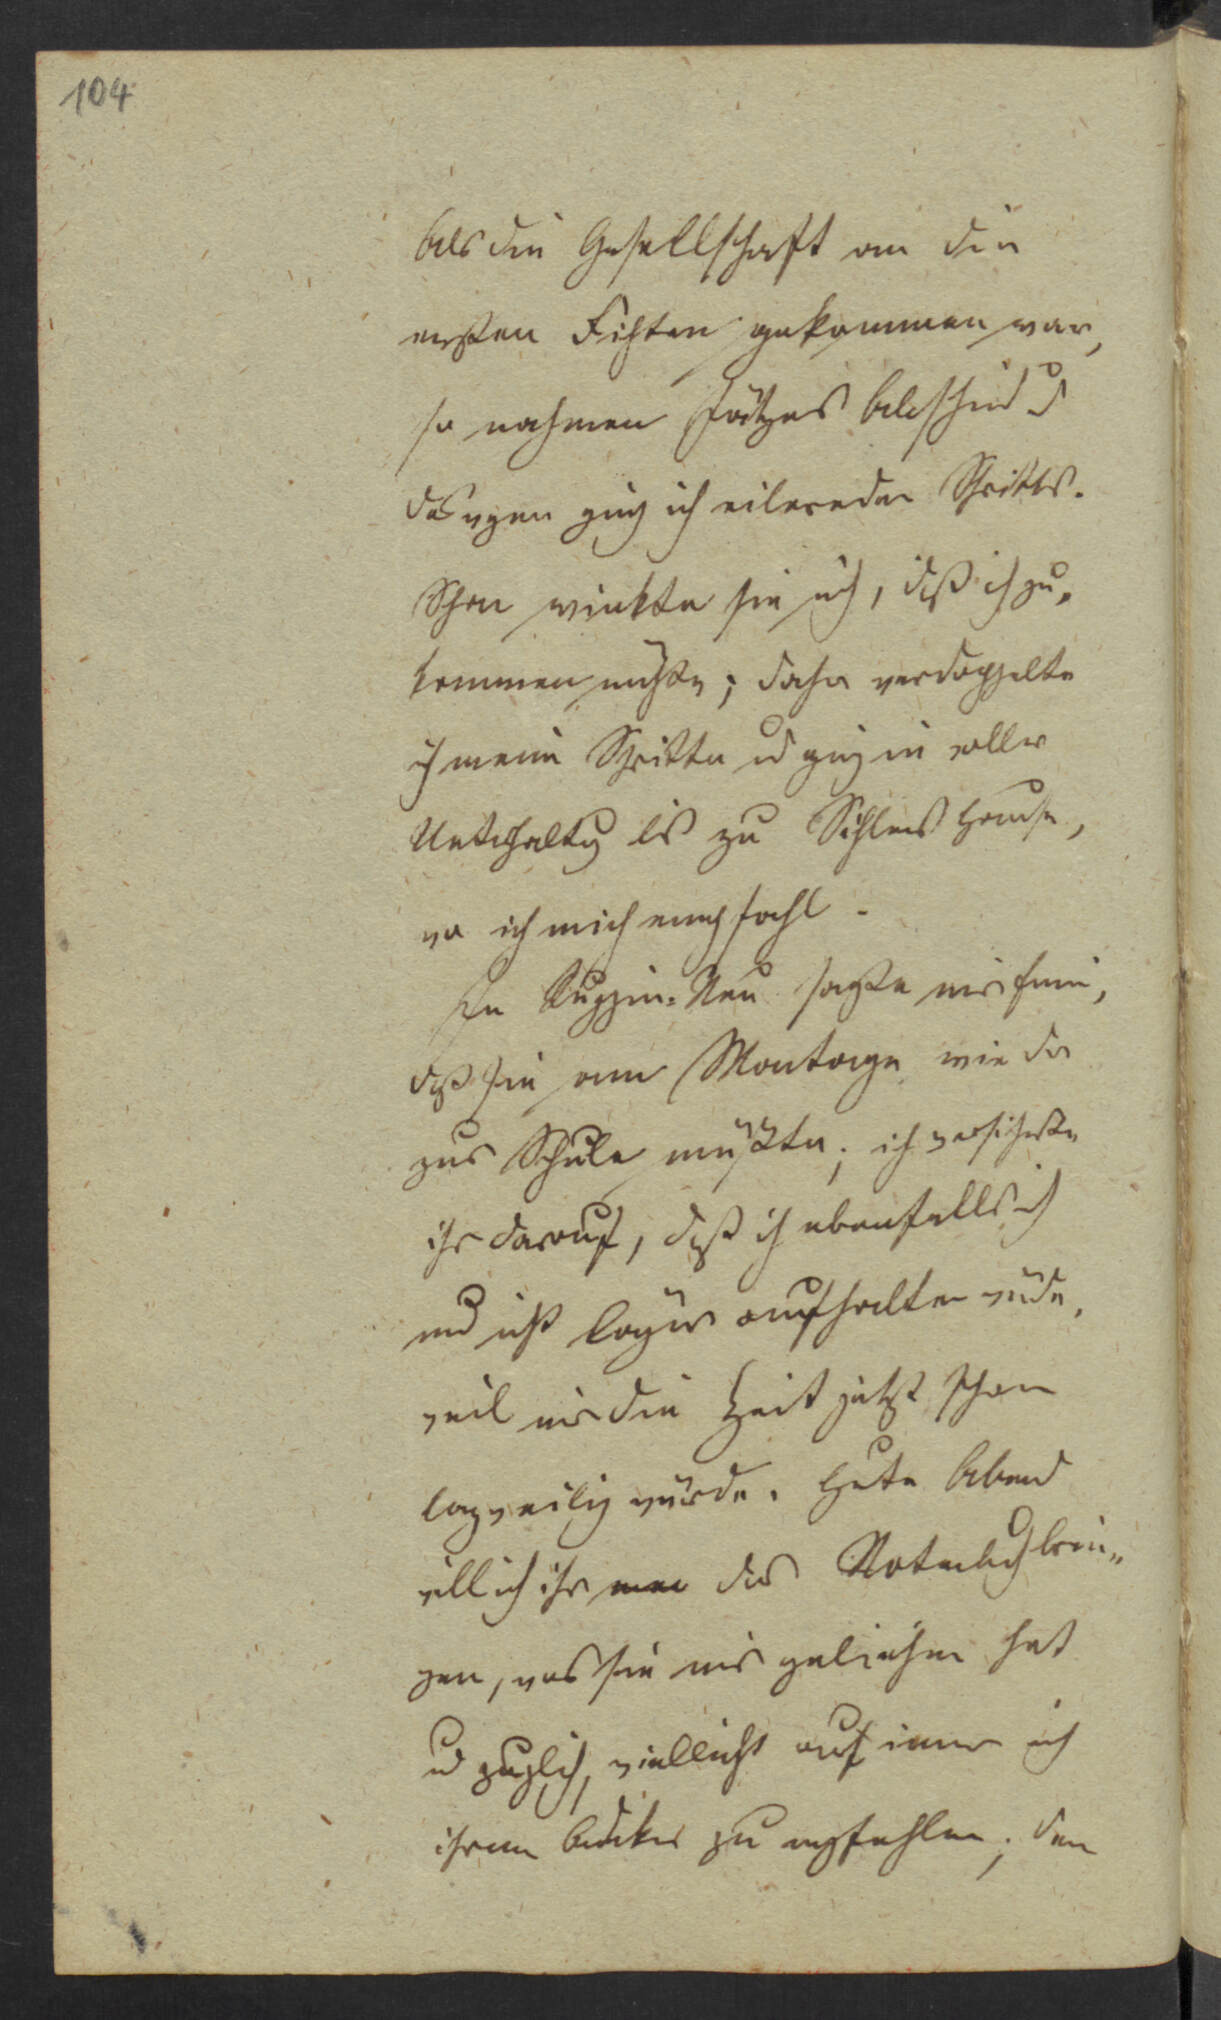 104
Als die Gesellschaft an die
ersten Fichten gekommen war,
so nahmen Abschied
deswegen ging ich eilenden Schritts.
Schon winkte sie mich, daß ich zu„
kommen möchte; daher verdoppelte
ich meine Schritte und ging in voller
Unterhaltung bis zu Hause,
wo ich mich empfahl.
In sagte mir
daß sie am Montage wieder
zur Schule müßte; ich versicherte
ihr darauf, daß ich ebenfalls mich
nicht länger aufhalten würde,
weil mir die Zeit jetzt schon
langweilig würde. Heute Abend
will ich ihr das Notenbuch brin„
gen, was sie mir geliehen hat
und zugleich, vielleicht auf immer mich
ihrem zu empfehlen; denn